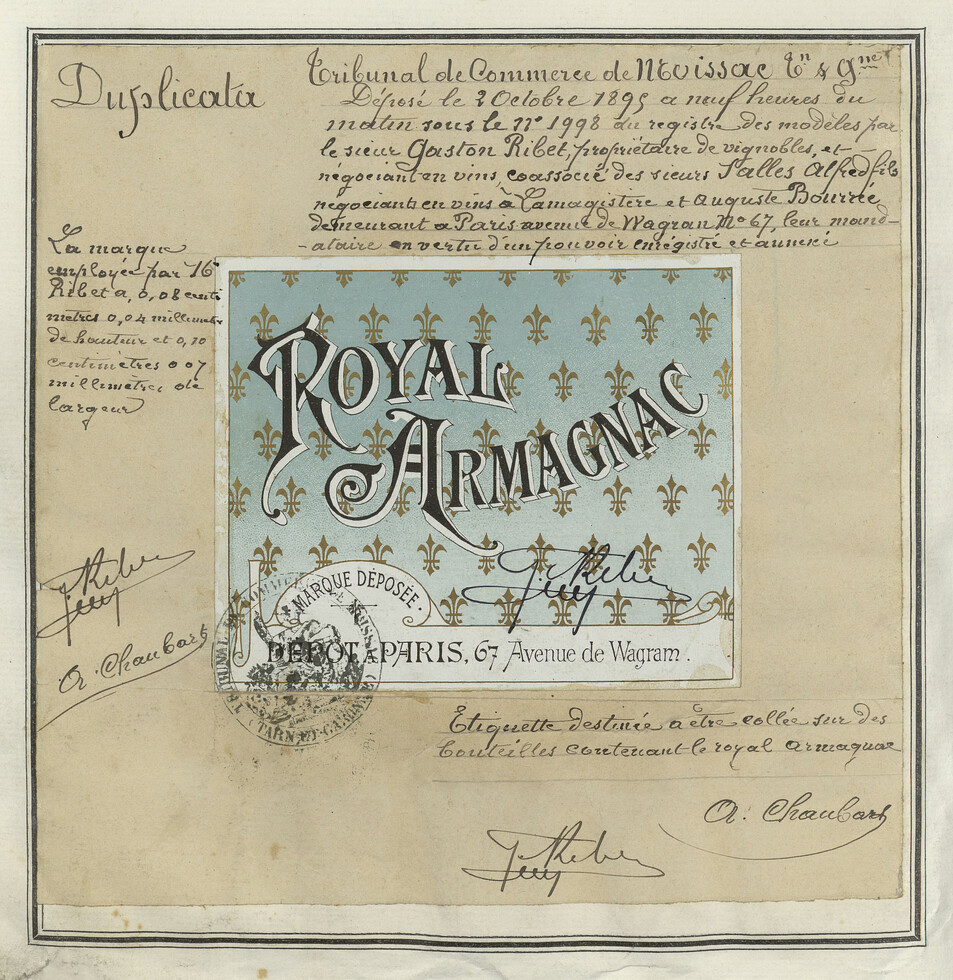 Duplicata
Tribunal de Commerce de Moissac Tn & Gne
Déposé le 2 Octobre 1895 a neuf heures du
matin sous le No 1998 du registre des modèles par
le sieur Gaston Ribet, propriétaire de vignobles, et
négociant en vins, coassocié des sieurs Salles Alfred fils
négociants en vins à Lamagistère et Auguste Bourrié
demeurant a Paris avenue de Wagran No 67, leur mand-
-ataire en vertu d'un pouvoir enrégistré et annexé
La marque
employée par
Ribet a, 0,08 centi
mètres 0,04 millimètres
de hauteur et 0,10
centimètres 0 07
millimètres de
largeur
ROYAL
ARMAGNAC
MARQUE DÉPOSÉE
DÉPOT A PARIS, 67 Avenue de Wagram.
TRIBUNAL DE COMMERCE DE MOISSAC
(TARN-ET-GARONNE)
G. Ribet
G. Ribet
A. Chaubart
Etiquette destinée a être collée sur des
bouteilles contenant le royal armagnac
A. Chaubart
G. Ribet